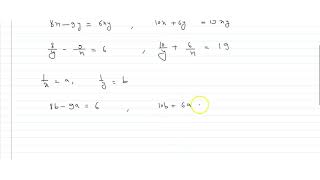 8x - 9y = 6xy , 10x + 6y = 19xy
8/y - 9/x = 6 , 10/y + 6/x = 19
1/x = a, 1/y = b
8b - 9a = 6 , 10b + 6a